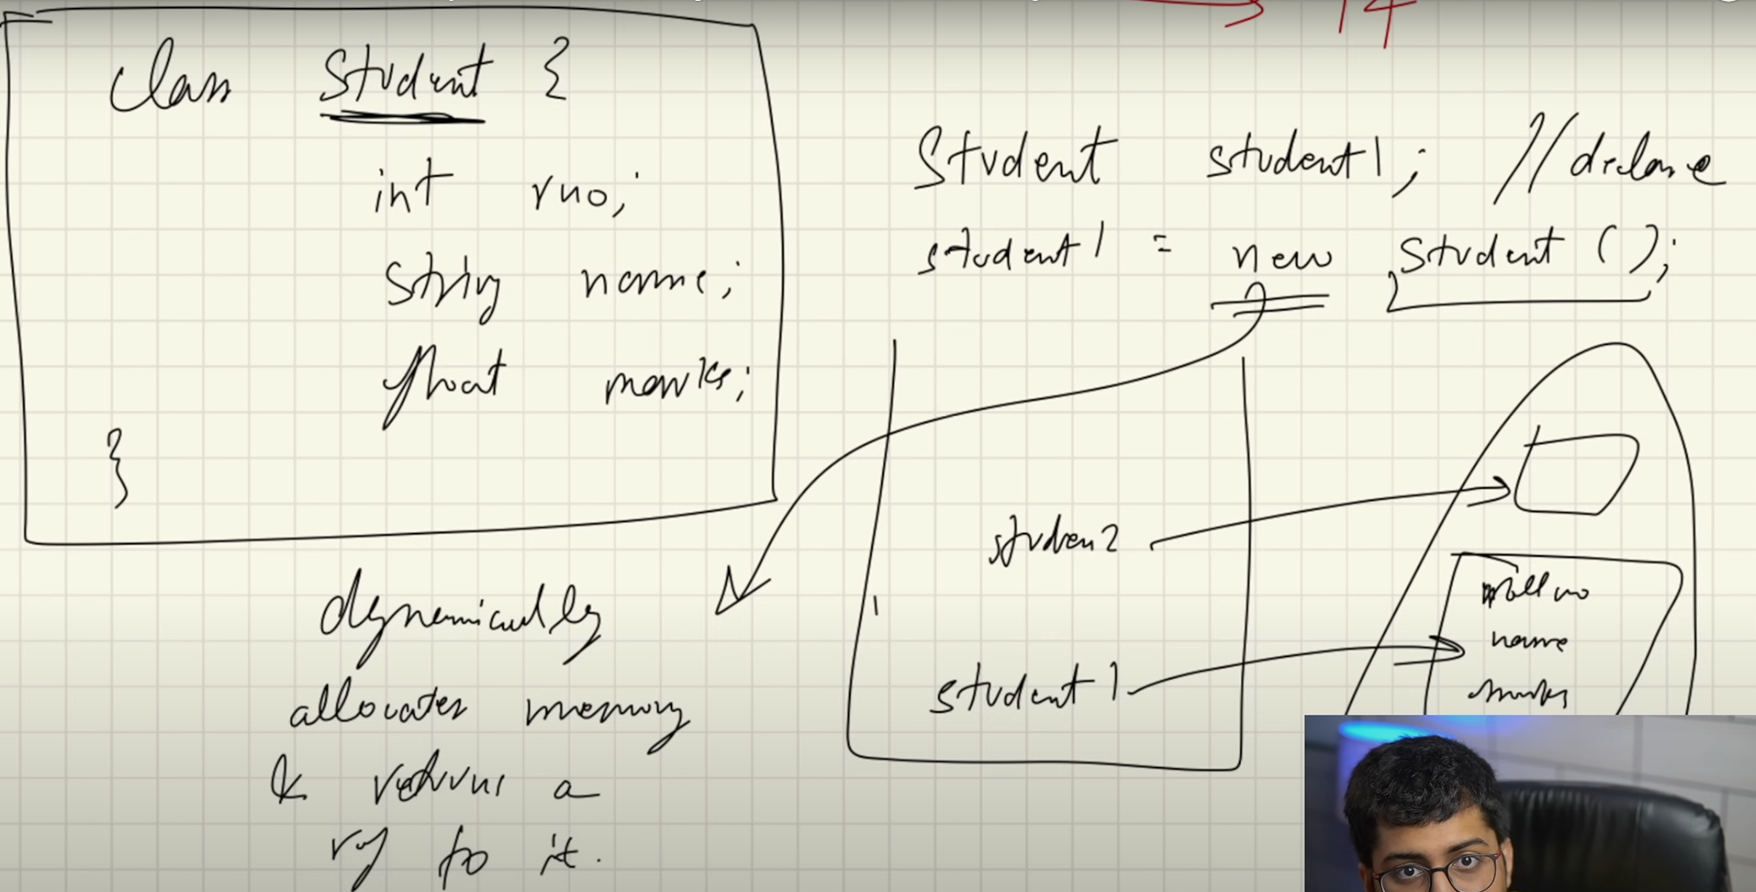 class Student {
int rno;
string name;
float marks;
}
Student student1; // declare
student1 = new Student ();
dynamically
allocates memory
& returns a
ref to it.
studen2
student1
roll no
name
marks